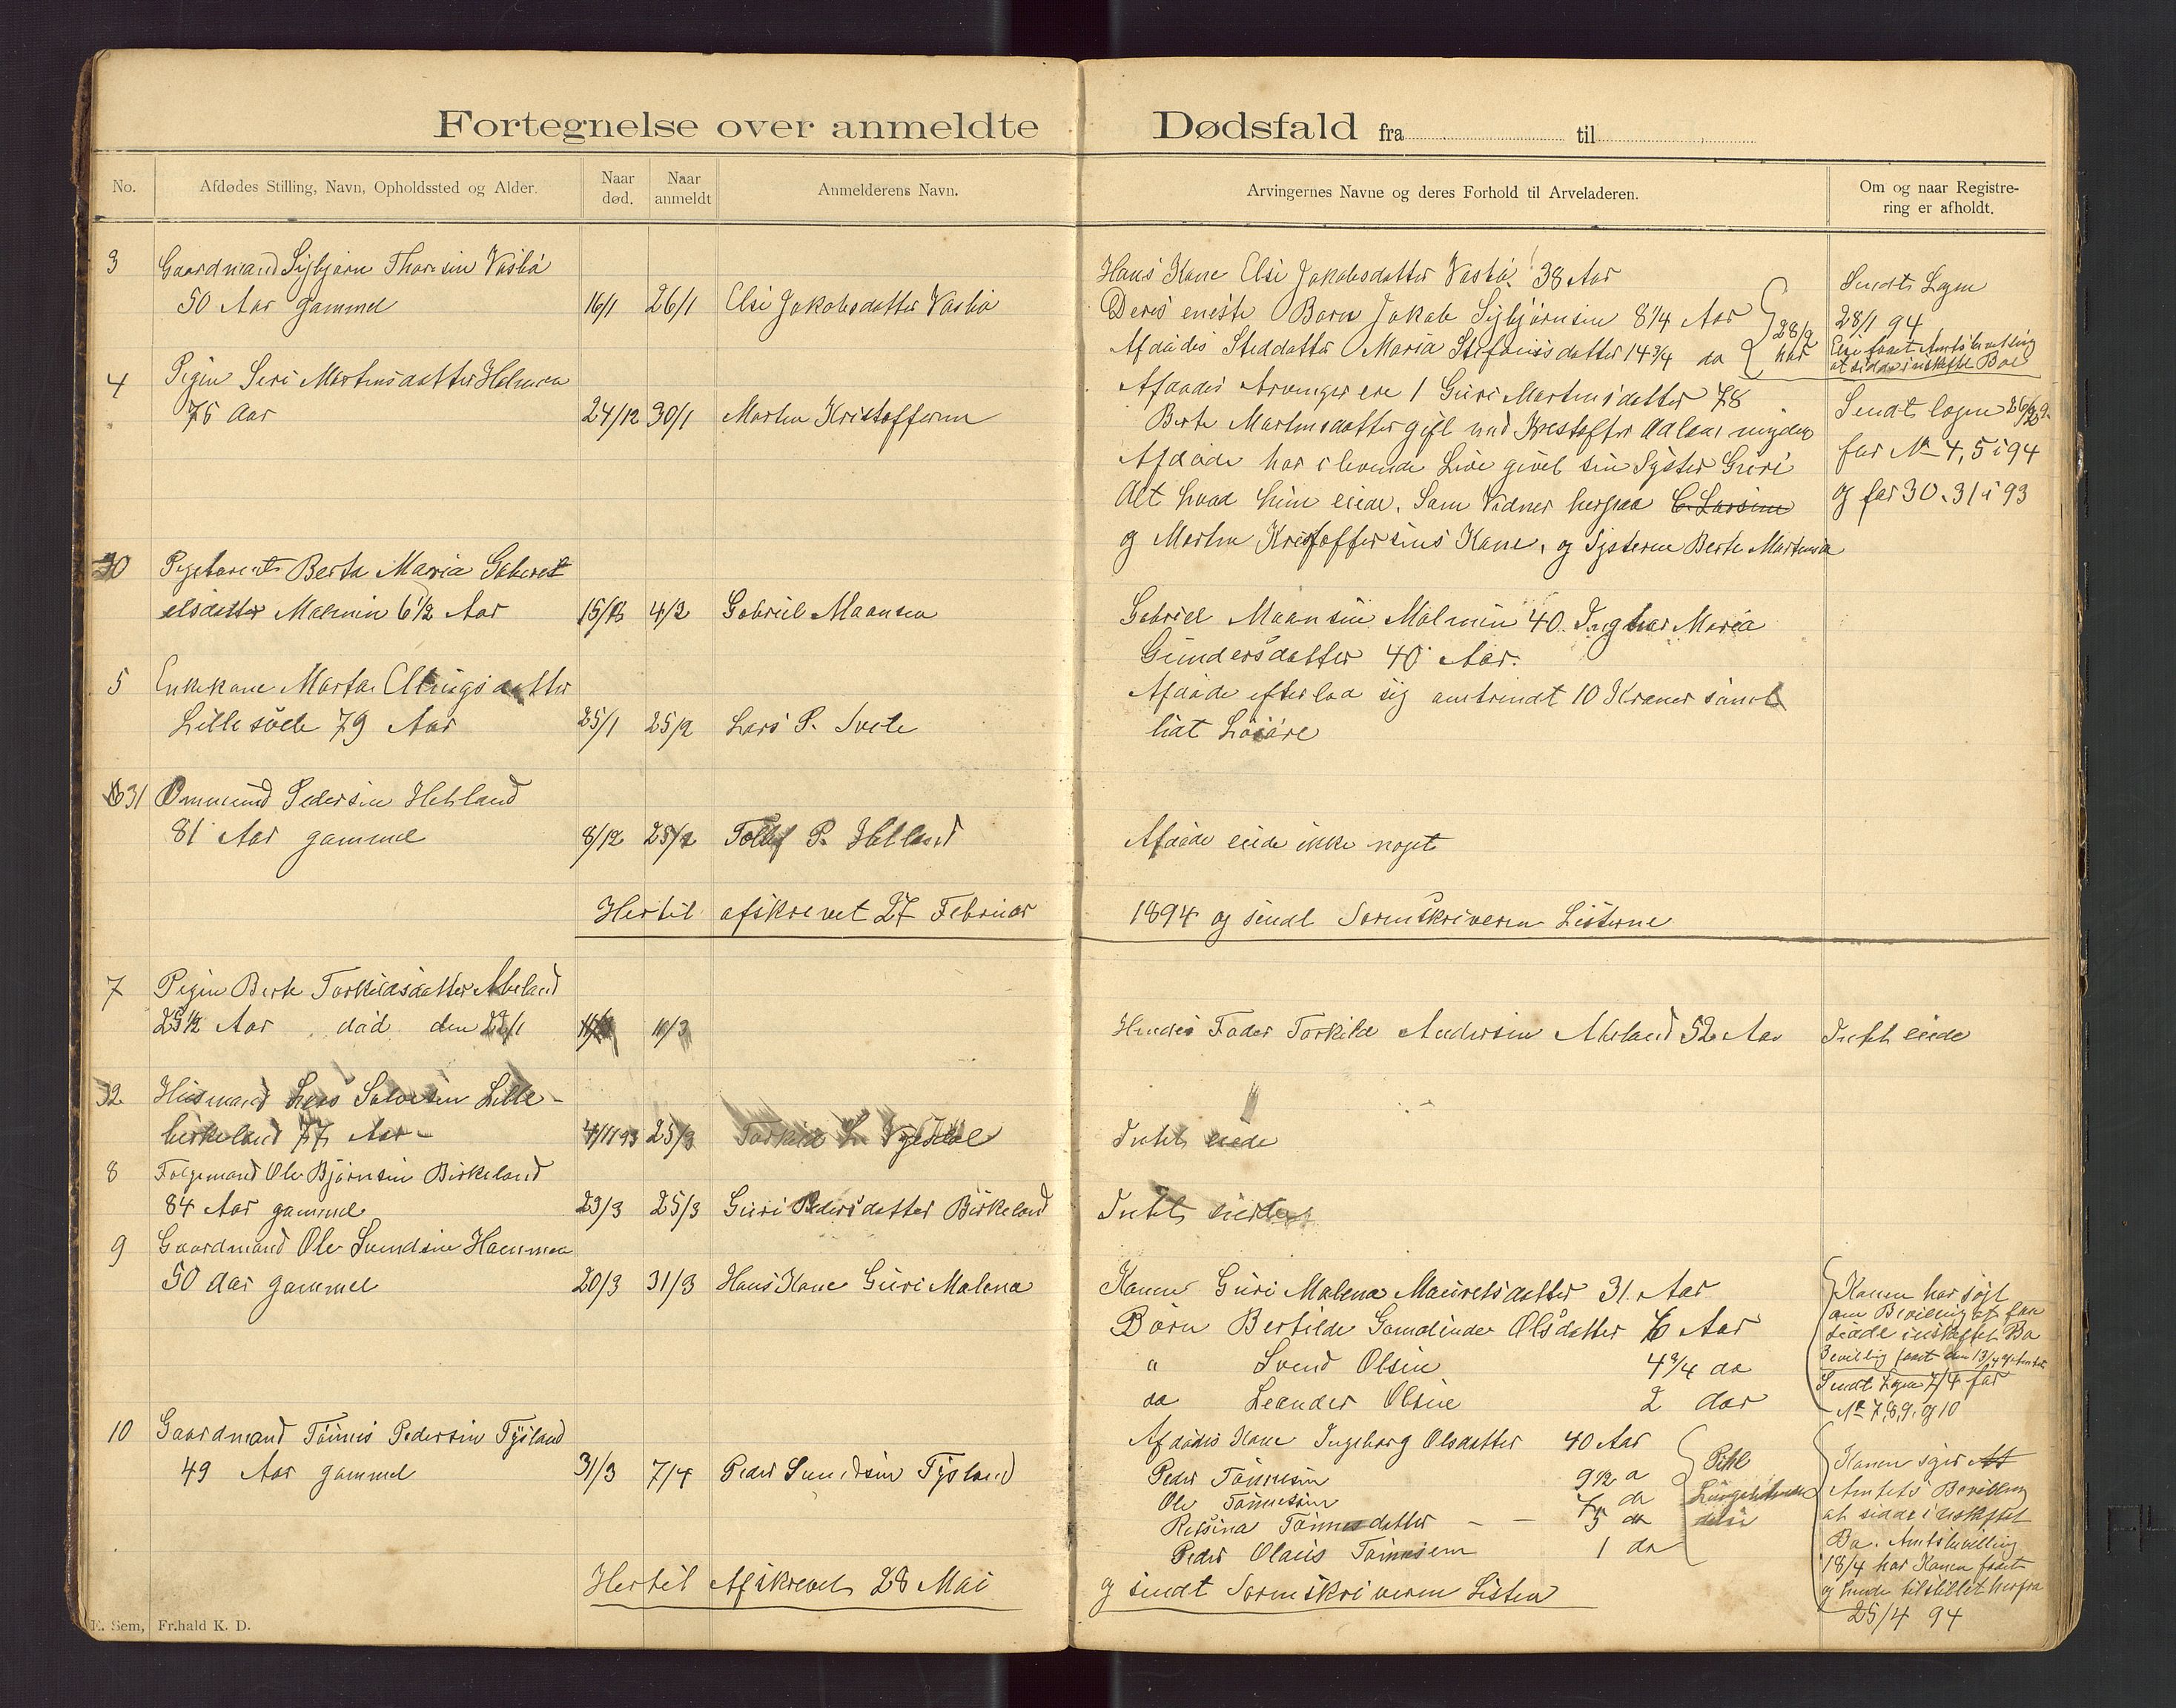 Fortegnelse over anmeldte Dødsfald fra til
No.
Afdødes Stilling, Navn, Opholdssted og Alder.
Naar død.
Naar anmeldt
Anmelderens Navn.
Arvingernes Navne og deres Forhold til Arveladeren.
Om og naar Registre-
ring er afholdt.
3 Gaardmand Sigbjørn Thorsen Vasbø
50 Aar gammel 16/1 26/1 Elsi Jakobsdatter Vasbø
Hans Kone Elsi Jakobsdatter Vasbø 38 Aar
Deres eneste Barn Jakob Sigbjørnsen 8 1/4 Aar
Afdødes Steddatter Maria Stefensdatter 14 3/4 do
28/2 har
Sendt Logen
28/1 94
Elsi faaet Amtsbevilling
at sidde i uskiftet Bo
4 Pigen Siri Martinsdatter Holmen
75 Aar 24/12 30/1 Martin Kristoffersen
Afdødes Arvinger ere 1 Guri Martinsdatter 78
Berte Martinsdatter gift med
Afdøde har i levende Live givet sin Syster Guri
Alt hvad hun eiede. Som Vidner herpaa C. Larsen
og Martin Kristoffersens Kone, og Systeren Berte Martinsd
Sendt logen
for No 4, 5 i 94
og for 30. 31 i 93
30 Pigebarnet Berta Maria Gabri
elsdatter Malmin 6 1/2 Aar 15/12 4/2 Gabriel Maansen
Gabriel Maansen Malmin 40. Maria
Gundersdatter 40 Aar.
5 Enkekone Marta Ellingsdatter
Lillesøele 79 Aar 25/1 25/2 Lars P. Svele
Afdøde efterlod sig omtrendt 10 Kroner samt
lidt Løsøre
31 Ommund Pedersen Hetland
81 Aar gammel 8/12 25/2 Tollef P. Hetland
Afdøde eiede ikke noget
Hertil afskrevet 27 Februar 1894 og sendt Sorenskriveren Listerne
7 Pigen Berte Torkildsdatter Abeland
25 1/2 Aar død den 22/1 11/3
Hendes Fader Torkild Andersen Abeland 52 Aar
Intet eiede
32 Husmand Lars Salvesen Lille-
birkeland 77 Aar- 4/11 93 25/3 Torkild L. Vgesdal
Intet eiede
8 Følgemand Ole Bjørnsen Birkeland
84 Aar gammel 23/3 25/3 Guri Pedersdatter Birkeland
Intet eiede
9 Gaardmand Ole Svendsen Hammen
50 Aar gammel 20/3 31/3 Hans Kone Guri Malena
Konen Guri Malena Mauretsdatter 31 Aar
Børn Bertilde Gomelinde Olsdatter 6 Aar
" Svend Olsen 4 3/4 do
do Leander Olsen 2 Aar
Konen har søgt
om Bevilling at faa
sidde i uskiftet Bo
Bevillig faaet den 13/4 af Amtet
Sendt Logen 7/4 for
No 7, 8, 9, og 10
10 Gaardmand Tønnes Pedersen Tysland
49 Aar gammel 31/3 7/4 Peder Svendsen Tysland
Afdødes Kone Ingeborg Olsdatter 40 Aar
Peder Tønnesen 9 1/2 a
Ole Tønnesen 7 do
Retsina Tønnesdatter - - 5 do
Peder Olaus Tønnesen 1 do
Konen søger
Amtets Bevilling
at sidde i uskiftet
Bo. Amtsbevilling
18/4 har Konen faaet
og hende tilstillet herfra
25/4 94
Hertil Afskrevet 28 Mai og sendt Sorenskriveren Listen
E. Sem, Fr.hald K. D.